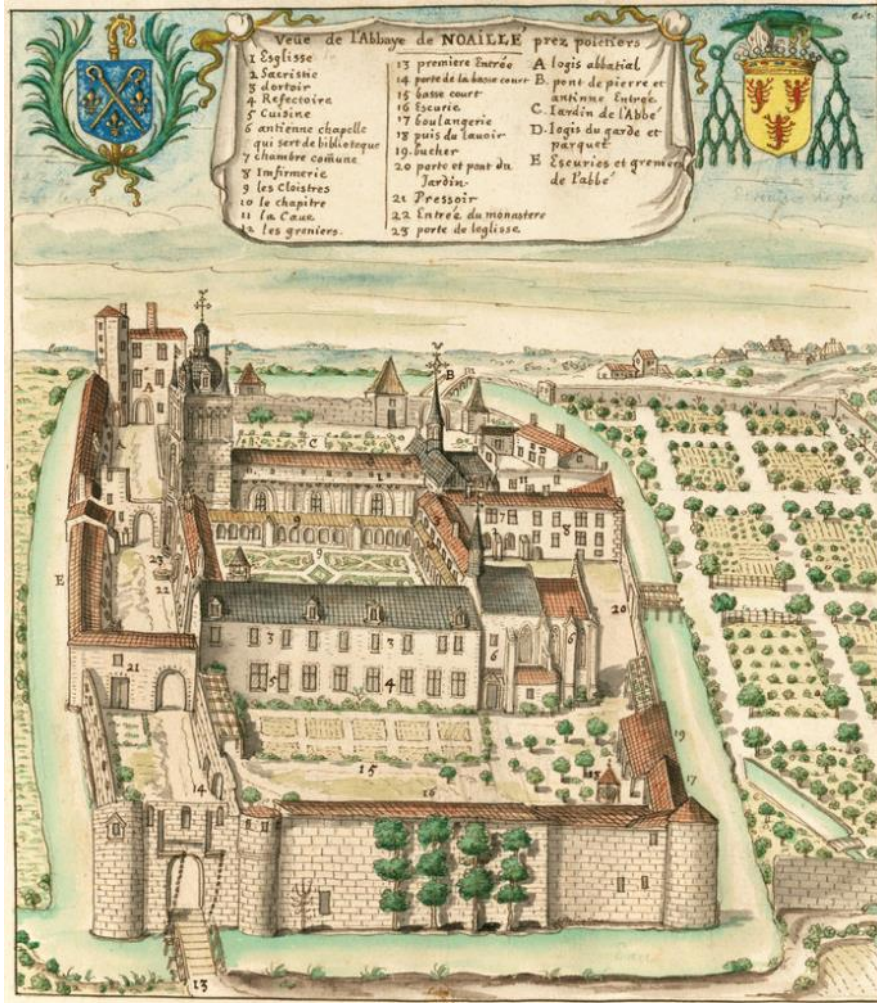 Veüe de l'Abbaye de NOAILLÉ prez poictiers
1 Esglisse
2 Sacristie
3 dortoir
4 Refectoire
5 Cuisine
6 antienne chapelle
qui sert de biblioteque
7 chambre comũne
8 Imfirmerie
9 les Cloistres
10 le chapitre
11 la Caue
12 les greniers.
13 premiere Entrée
14 porte de la basse court
15 basse court
16 Escurie
17 boulangerie
18 puis du lauoir
19. bucher
20 porte et pont du
Jardin.
21 Pressoir
22 Entrée du monastere
23 porte de leglisse
A logis abbatial
B. pont de pierre et
antinne Entrée
C. Iardin de l'Abbé
D. logis du garde et
parquet
E Escuries et grenier
de l'abbé
A
B
C
D
1
11
9
7
8
3
23
22
9
E
20
3
3
6
6
21
5
4
19
15
18
17
14
16
13